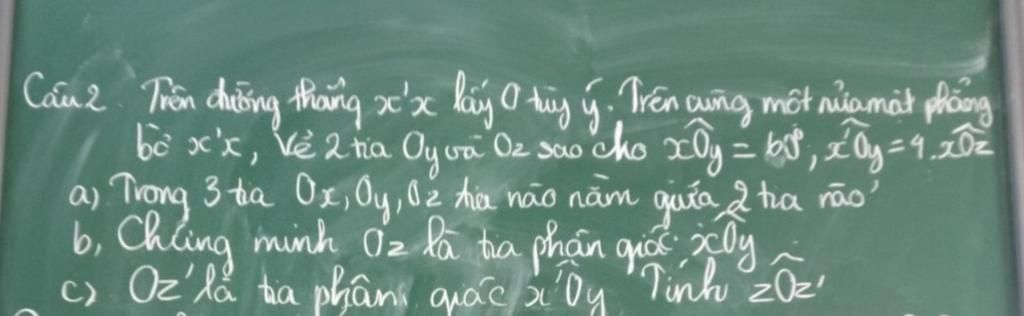 Câu 2. Trên đường thẳng x'x lấy O tùy ý. Trên cùng một nửa mặt phẳng
bờ x'x, Vẽ 2 tia Oy và Oz sao cho xÔy = 60°, x'Ôy = 4.xÔz
a) Trong 3 tia Ox, Oy, Oz tia nào nằm giữa 2 tia nào?
b, Chứng minh Oz là tia phân giác xÔy
c) Oz' là tia phân giác x'Ôy Tính zÔz'